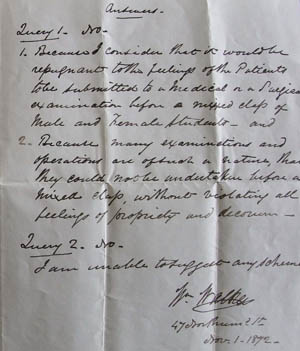 Answers.
Query 1. No-
1. Because I consider that it would be
repugnant to the feelings of the Patients
to be submitted to a Medical or a Surgical
examination before a mixed class of
Male and Female Students - and
2. Because many examinations and
operations are of such a nature that
they could not be undertaken before a
mixed class, without violating all
feelings of propriety and decorum -
Query 2. No -
I am unable to suggest any scheme
Wm Walker
47 Northumd St
Nov. 1 - 1872 -